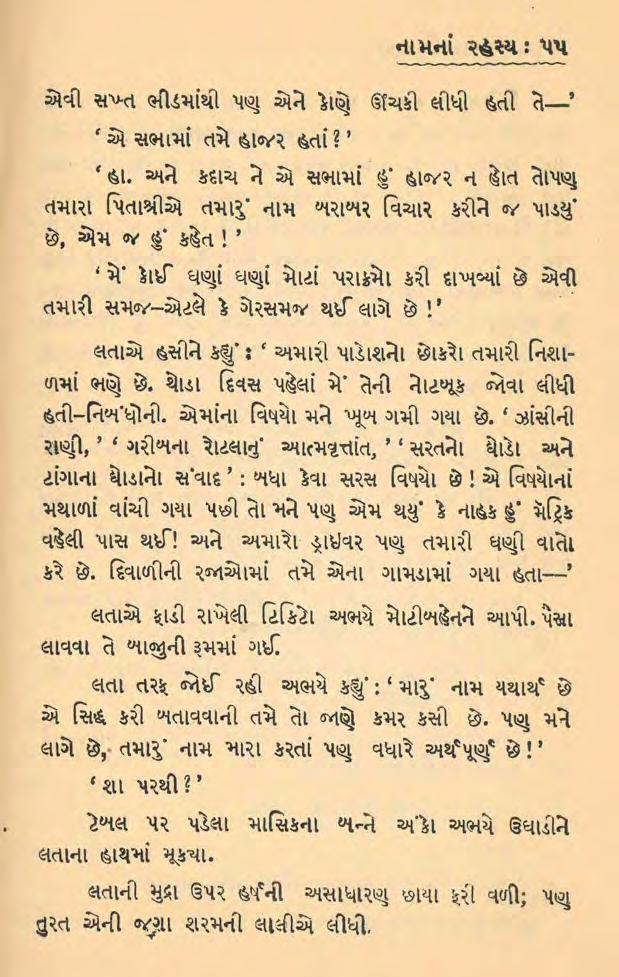 નામનાં રહસ્ય : ૫૫
એવી સખ્ત ભીડમાંથી પણ એને કોણે ઊંચકી લીધી હતી તે—’
‘ એ સભામાં તમે હાજર હતાં ? ’
‘ હા. અને કદાચ ને એ સભામાં હું હાજર ન હોત તોપણ
તમારા પિતાશ્રીએ તમારું નામ બરાબર વિચાર કરીને જ પાડયું
છે, એમ જ હું કહેત ! ’
‘ મેં કોઈ ઘણાં ઘણાં મોટાં પરાક્રમો કરી દાખવ્યાં છે એવી
તમારી સમજ—એટલે કે ગેરસમજ થઈ લાગે છે !’
લતાએ હસીને કહ્યું : ‘ અમારી પાડોશનો છોકરો તમારી નિશા-
ળમાં ભણે છે. થોડા દિવસ પહેલાં મેં તેની નોટબૂક જોવા લીધી
હતી—નિબંધોની. એમાંના વિષયો મને ખૂબ ગમી ગયા છે. ‘ ઝાંસીની
રાણી, ’ ‘ ગરીબના રોટલાનું આત્મવૃત્તાંત, ’ ‘ સરતનો ઘોડો અને
ટાંગાના ઘોડાનો સંવાદ ’ : બધા કેવા સરસ વિષયો છે ! એ વિષયોનાં
મથાળાં વાંચી ગયા પછી તો મને પણ એમ થયું કે નાહક હું મૅટ્રિક
વહેલી પાસ થઈ! અને અમારો ડ્રાઇવર પણ તમારી ઘણી વાતો
કરે છે. દિવાળીની રજાઓમાં તમે એના ગામડામાં ગયા હતા—’
લતાએ ફાડી રાખેલી ટિકિટો અભયે મોટીબહેનને આપી. પૈસા
લાવવા તે બાજુની રૂમમાં ગઈ.
લતા તરફ જોઈ રહી અભયે કહ્યું : ‘ મારું નામ યથાર્થ છે
એ સિદ્ધ કરી બતાવવાની તમે તો જાણે કમર કસી છે. પણ મને
લાગે છે, તમારું નામ મારા કરતાં પણ વધારે અર્થપૂર્ણ છે !’
‘ શા પરથી ? ’
ટેબલ પર પડેલા માસિકના બન્ને અંકો અભયે ઉઘાડીને
લતાના હાથમાં મૂકયા.
લતાની મુદ્રા ઉપર હર્ષની અસાધારણ છાયા ફરી વળી; પણ
તુરત એની જગ્રા શરમની લાલીએ લીધી.